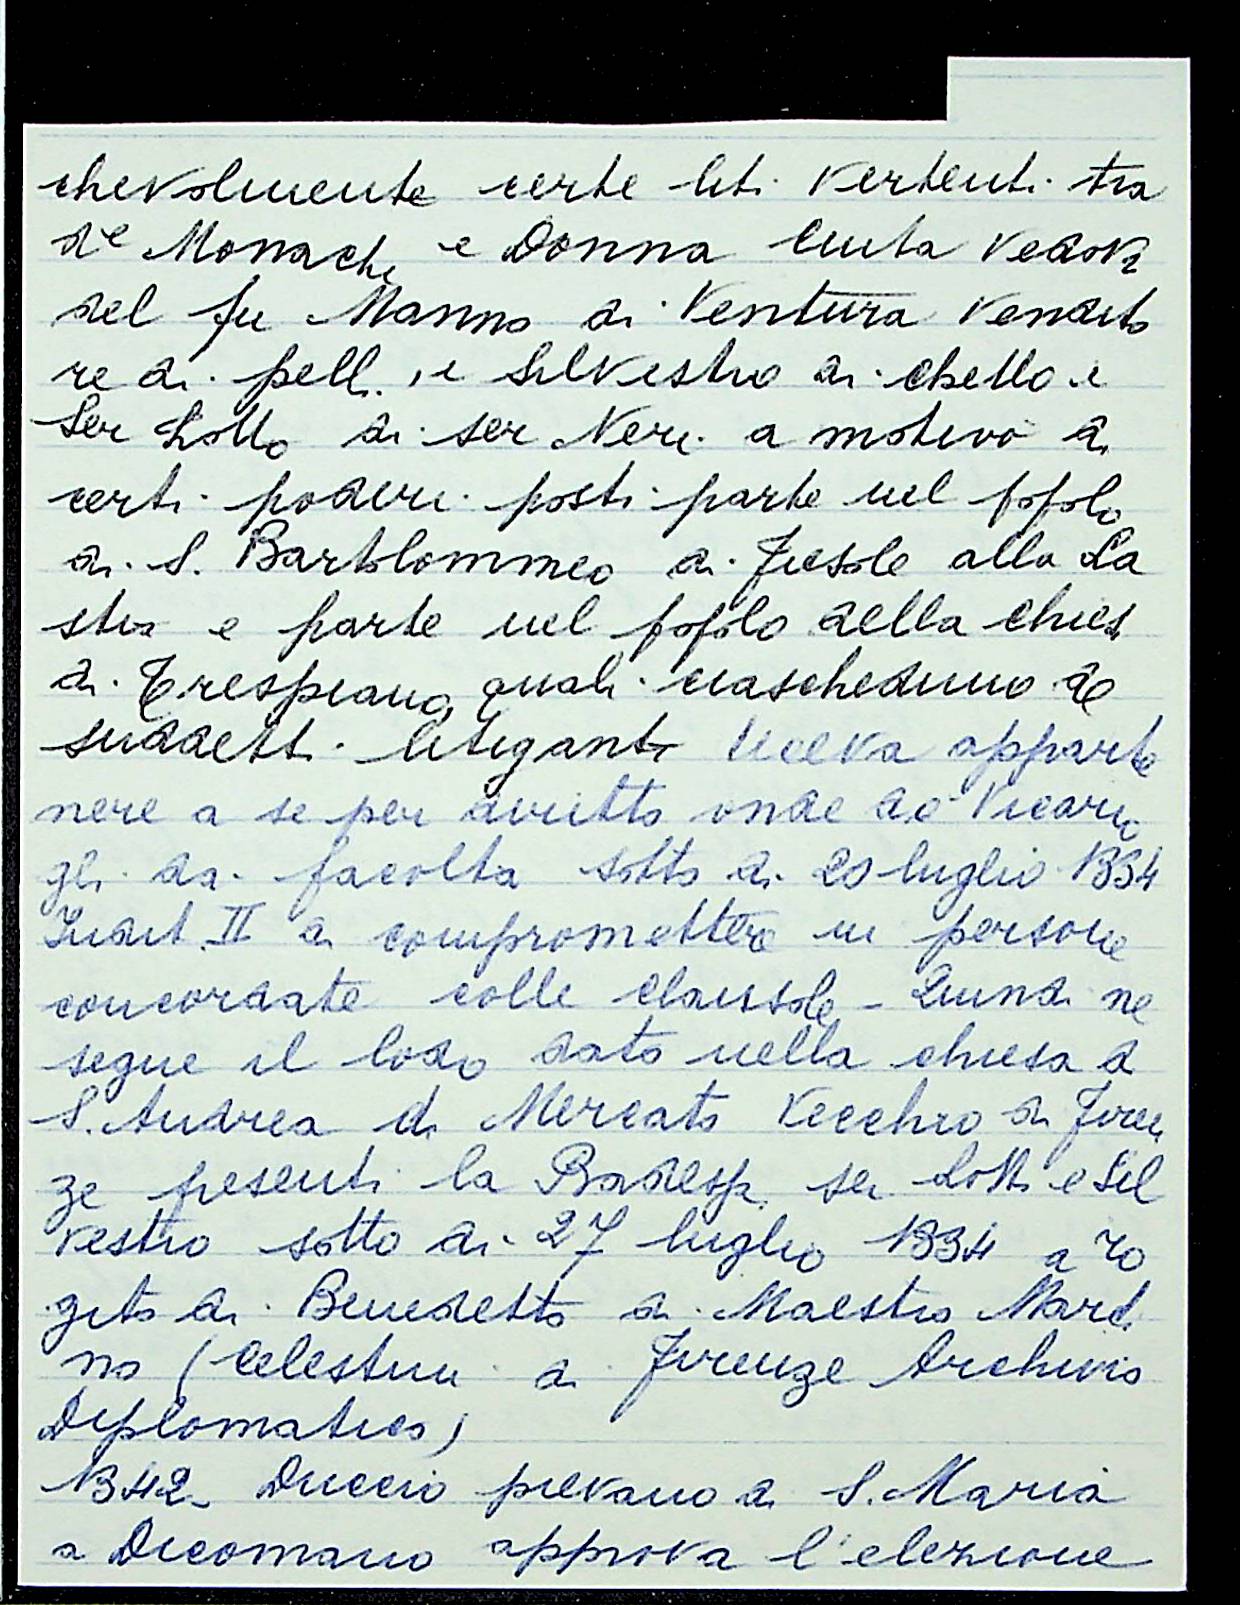 chevolmente certe liti vertenti tra
de Monache e Donna Cinta vedova
del fu Manno di Ventura vendito
re di pelli, e Silvestro di Chello e
Ser Lotto di ser Neri a motivo di
certi poderi posti parte nel popolo
di S. Bartolommeo di Fiesole alla La
stra e parte nel popolo della chiesa
di Trespiano, quali ciascheduno de
suddetti litiganti voleva apparte
nere a se per diritto onde do Vicario
gli dà facoltà sotto di 20 luglio 1334
Indit. II di compromettere in persone
concordate colle clausole - Quindi ne
segue il lodo dato nella chiesa di
S. Andrea di Mercato Vecchio di Firen
ze presenti la Badessa, ser Lotti e Sil
vestro sotto di 27 luglio 1334 a ro
gito di Benedetto di Maestro Marti
no (Celestini di Firenze Archivio
Diplomatico)
1342 - Duccio pievano di S. Maria
a Dicomano approva l'elezione